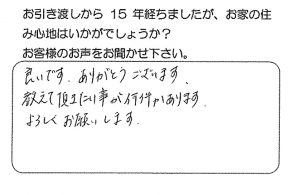 お引き渡しから 15 年経ちましたが、お家の住
み心地はいかがでしょうか?
お客様のお声をお聞かせ下さい。
良いです。ありがとうございます。
教えて頂きたい事が何件かあります。
よろしくお願いします。